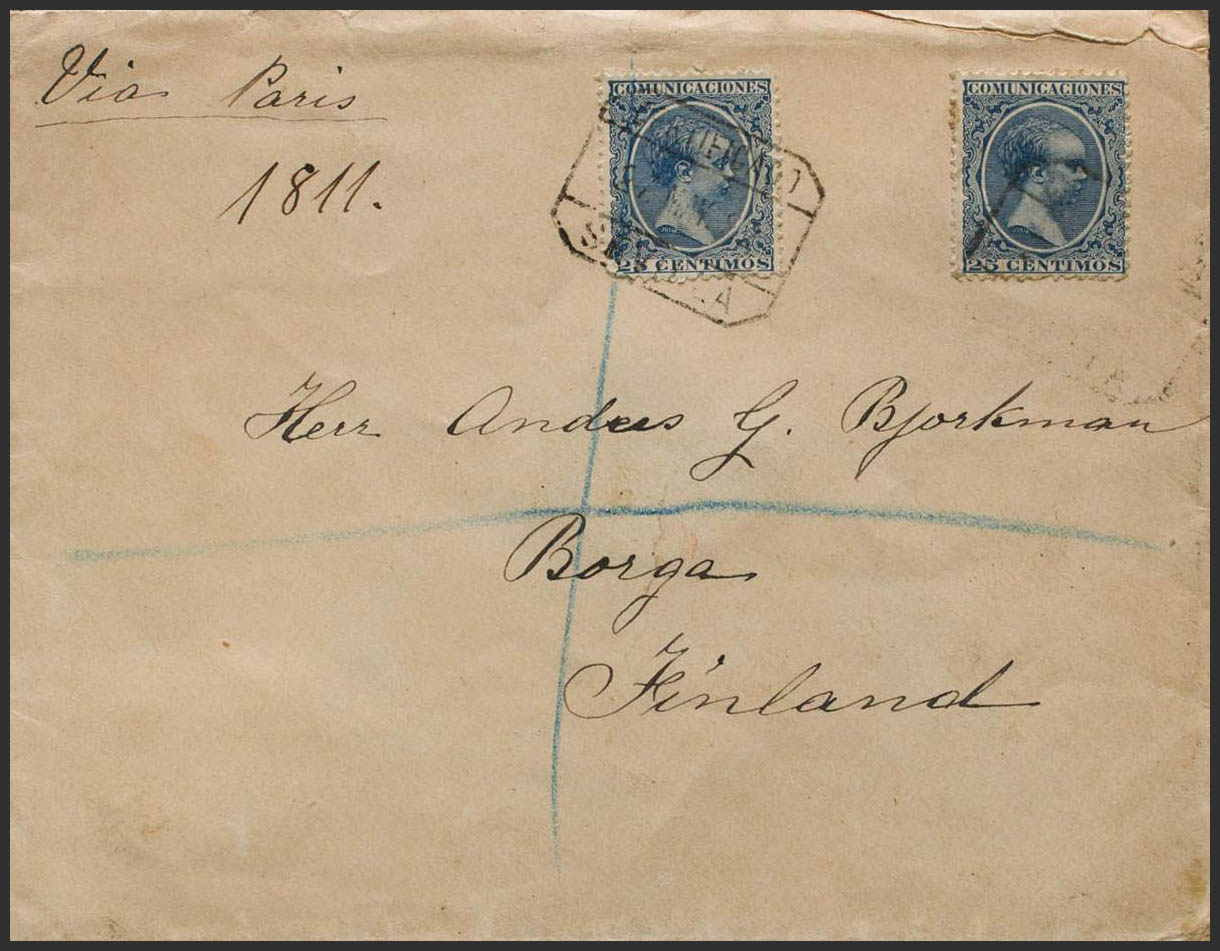 Via Paris
1811.
COMUNICACIONES
25 CENTIMOS
COMUNICACIONES
25 CENTIMOS
Herr Andres G. Bjorkman
Borga
Finland